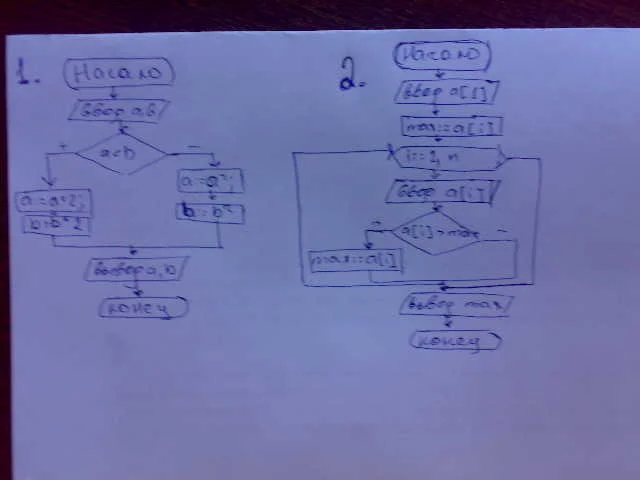 1.
Начало
ввод a,b
a<b
+
-
a:=a*2;
b:=b*2
a:=a²;
b:=b²
вывод a,b
конец
2.
Начало
ввод a[1]
max:=a[i]
i:=2, n
ввод a[i]
a[i]>max
-
max:=a[i]
вывод max
конец